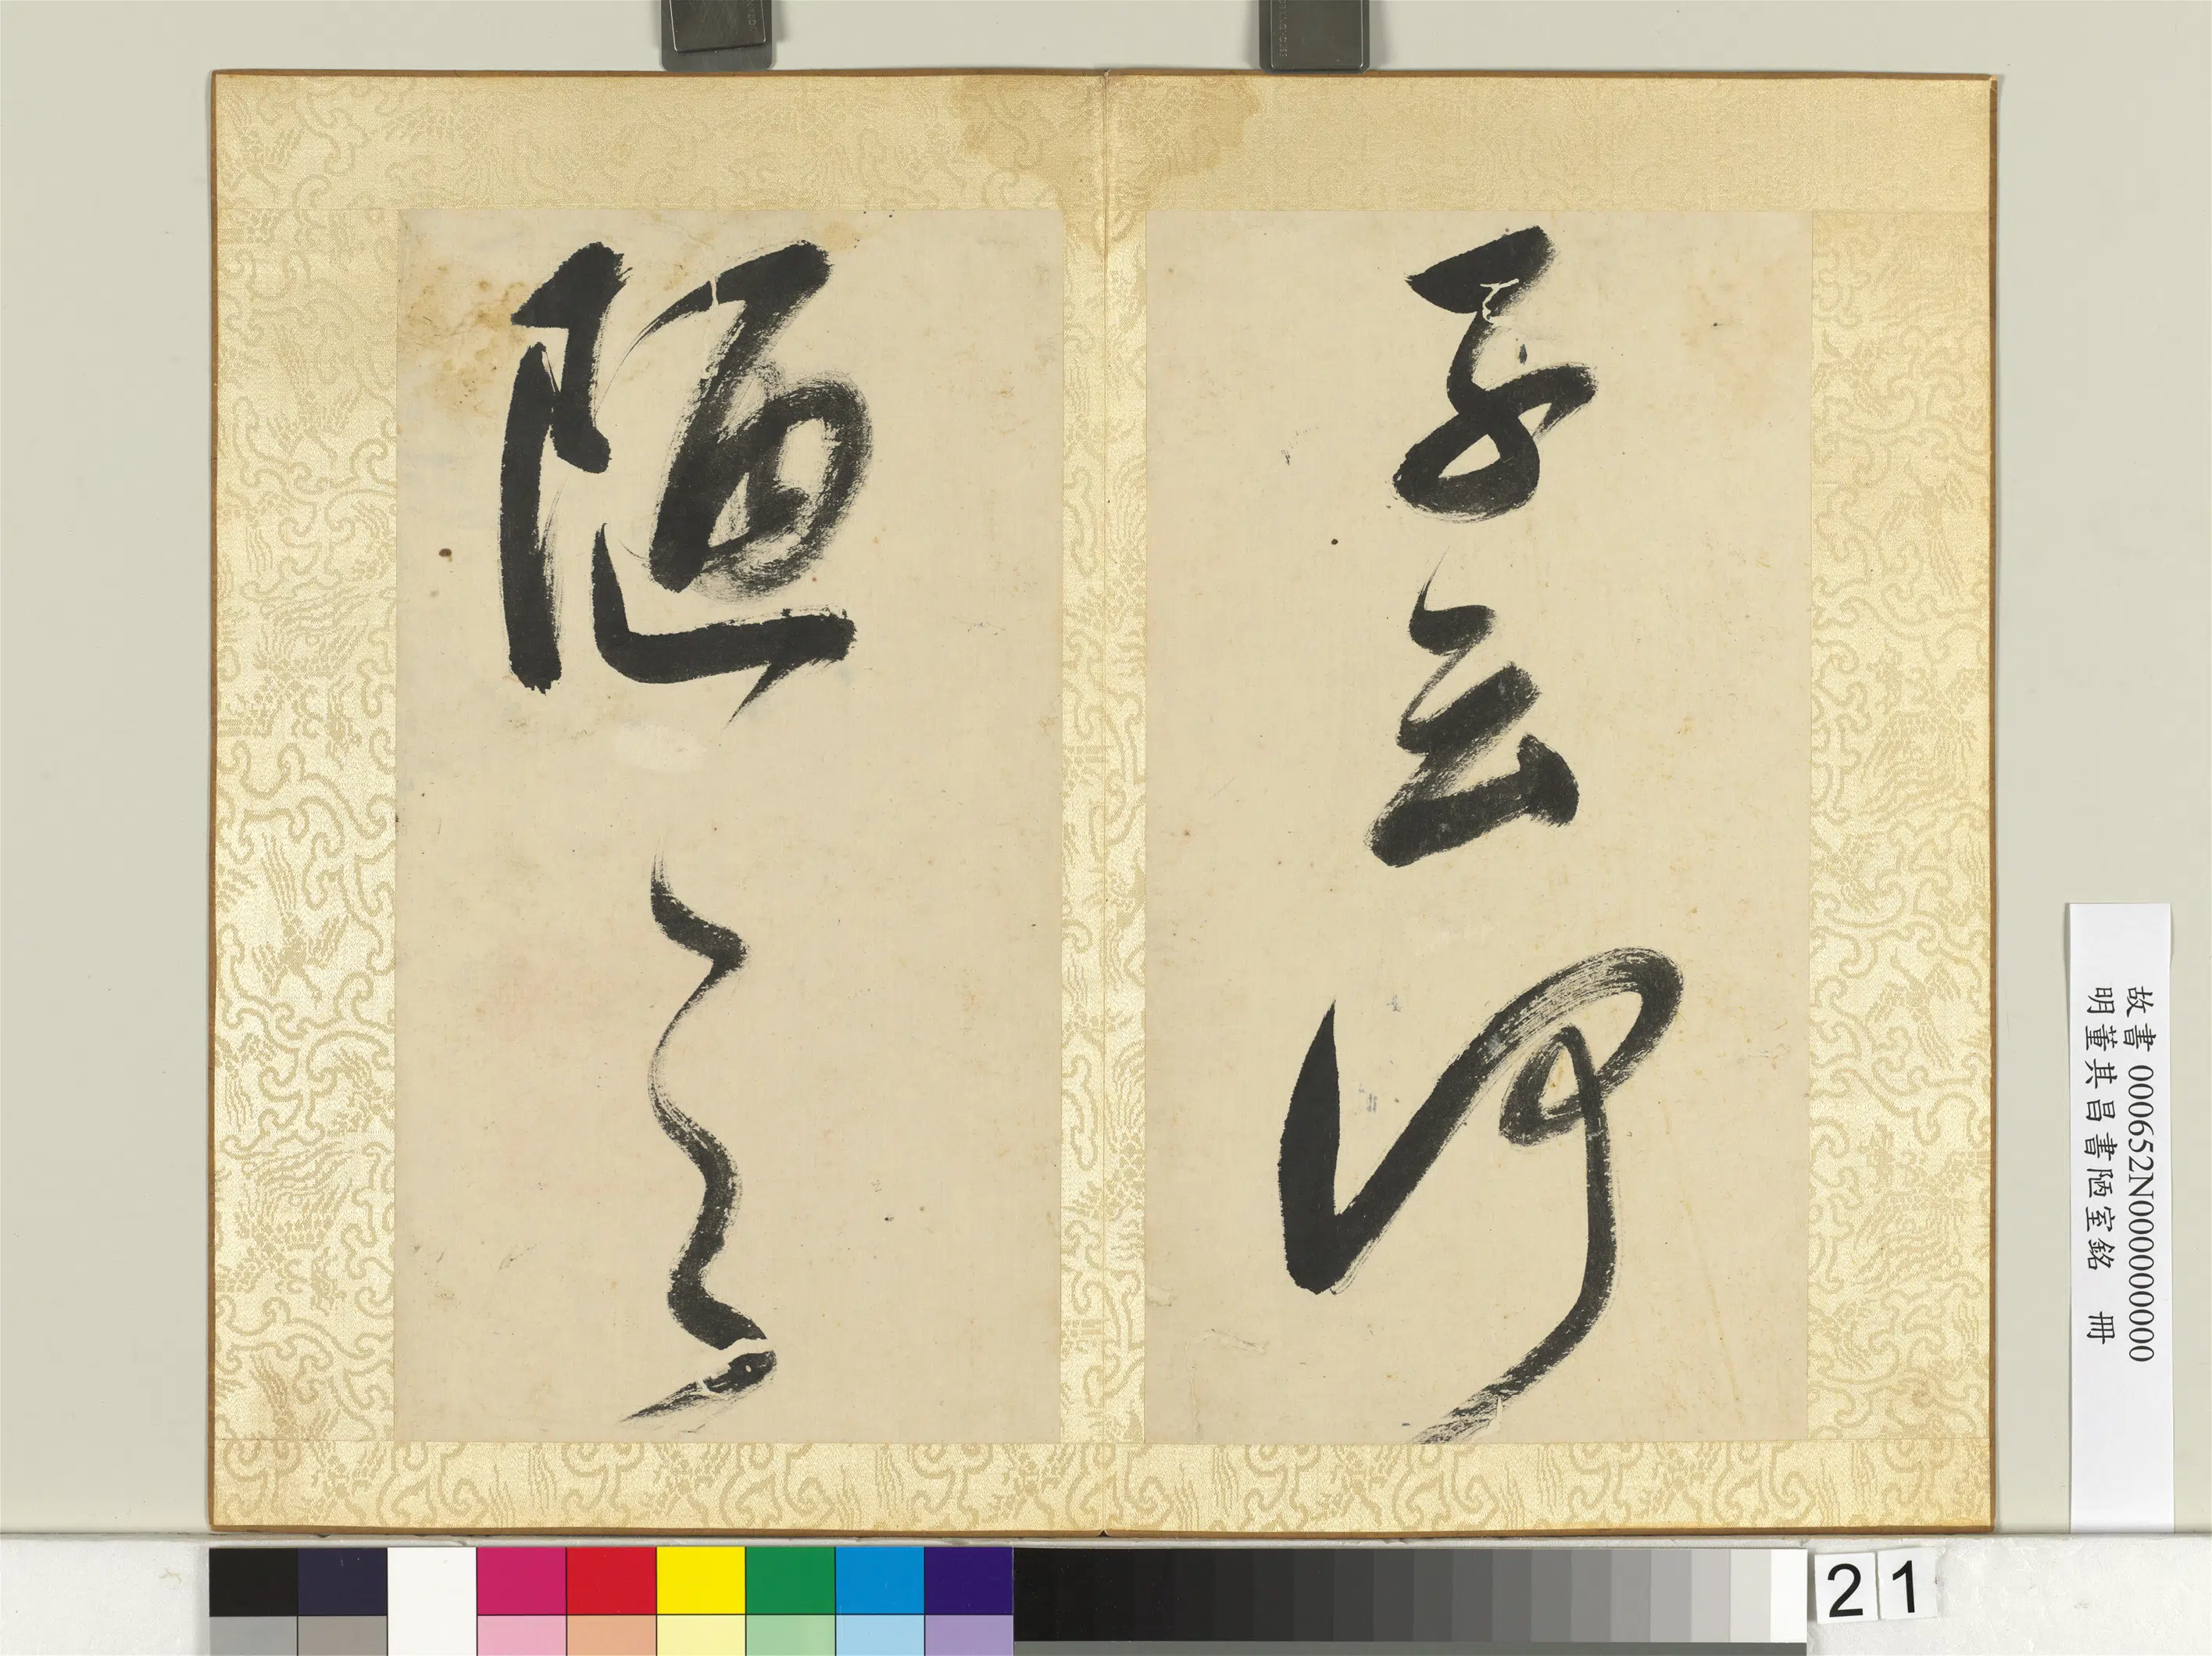 子云何
陋之
故書 000652N000000000
明董其昌書陋室銘 冊
21